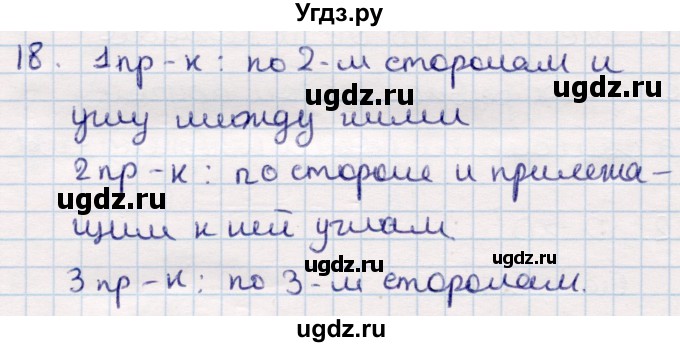 Угдз.ру
18. 1пр-к: по 2-м сторонам и
углу между ними
2пр-к: по стороне и прилежа-
щим к ней углам
3пр-к: по 3-м сторонам.
ugdz.ru
ugdz.ru
ugdz.ru
ugdz.ru
ugdz.ru
ugdz.ru
ugdz.ru
ugdz.ru